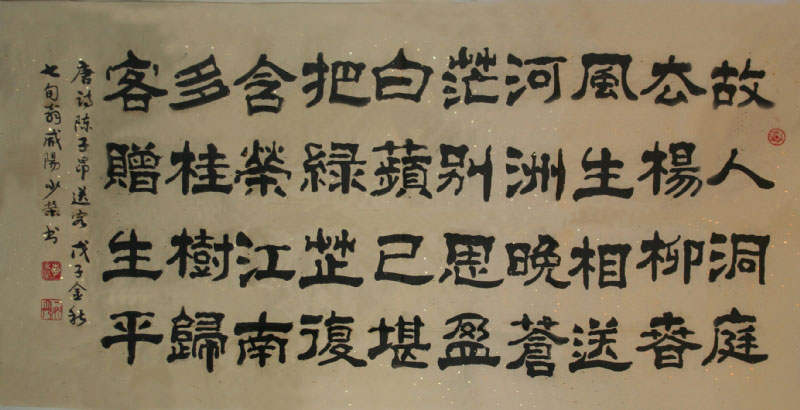 故人洞庭
去楊柳春
風生相送
河洲晚蒼
茫别思盈
白蘋已堪
把緑芷復
含榮江南
多桂樹歸
客贈生平
唐诗陈子昂送客 戊子金秋
七旬翁咸陽少荣书